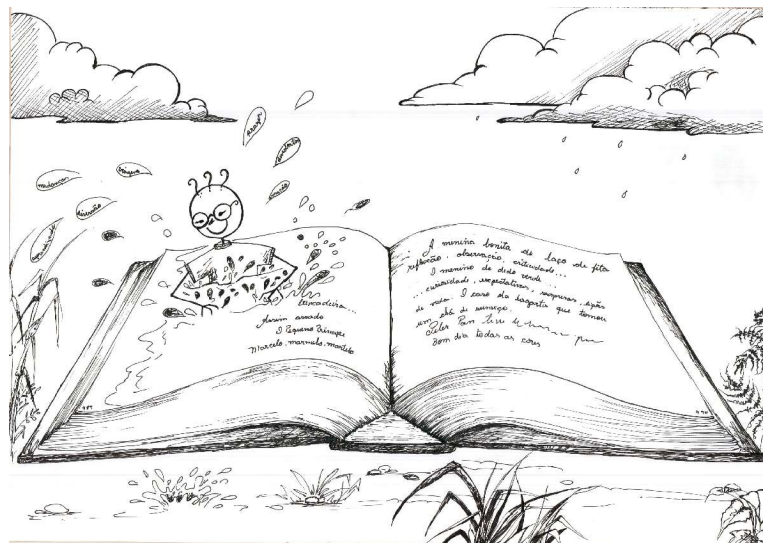 mudanças
diversão
brincadeira...
Assim assado
O Pequeno Príncipe
Marcelo, marmelo, martelo
A menina bonita do laço de fita
reflexão, observação, criticidade...
O menino do dedo verde
...curiosidade, expectativas, surpresas, lições
de vida. O caso da lagarta que tomou
um chá de sumiço.
Peter Pan
Bom dia todas as cores